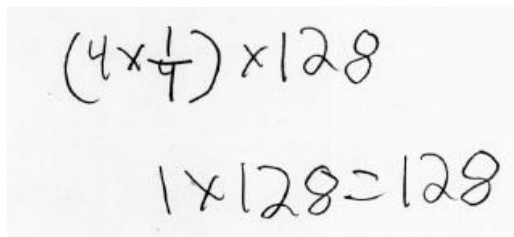 (4×1/4)×128
1×128=128